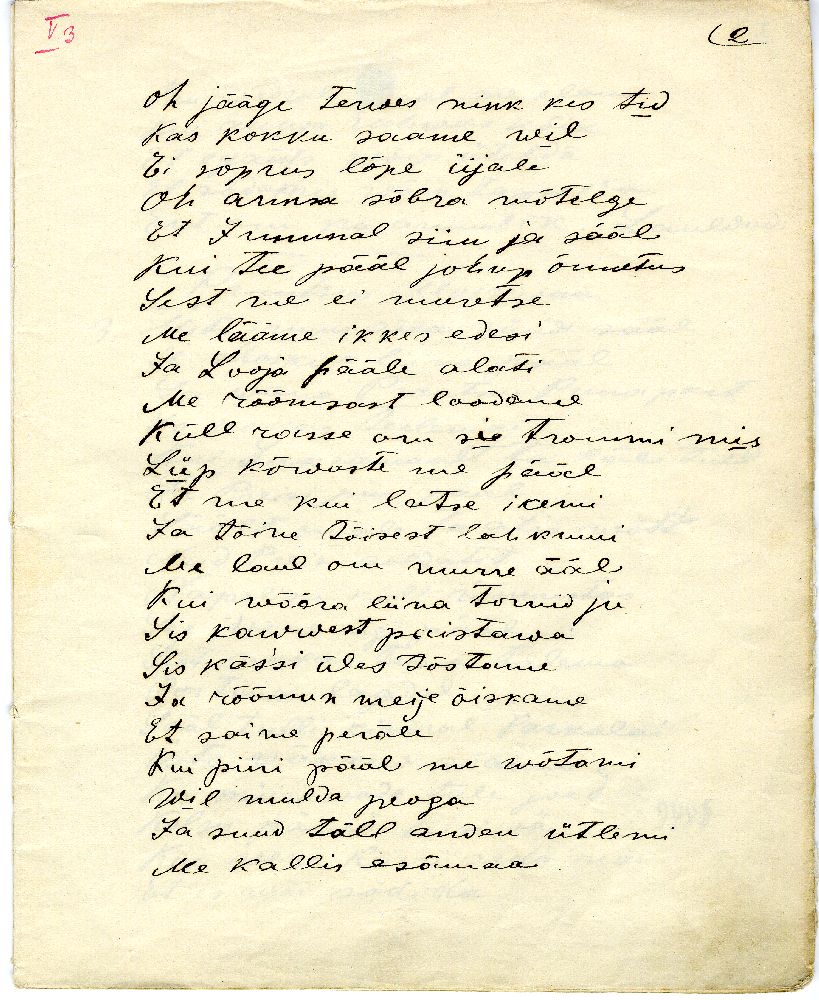 V 3
(2
Oh jääge terwes nink kes tid
Kas kokku saame wil
Ei sõprus lõpe iijale
Oh armsa sõbra mõtelge
Et Jummal siin ja sääl
Kui tee pääl johup õnnetus
Sest me ei muretse
Me lääme ikkes edesi
Ja Looja pääle alati
Me rõõmsast loodame
Küll rasse om sie trommi mis
Lüp kõwaste me pääl
Et me kui latse ikemi
Ja tõine tõisest lahkmi
Me laul om murre ääl
Kui wõõra liina tornid ju
Sis kawwest paistawa
Sis kässi üles tõstame
Ja rõõmun meije õiskame
Et saime peräle
Kui piiri pääl me wõtami
Wil mulda peoga
Ja suud täll anden ütlemi
Me kallis esämaa.